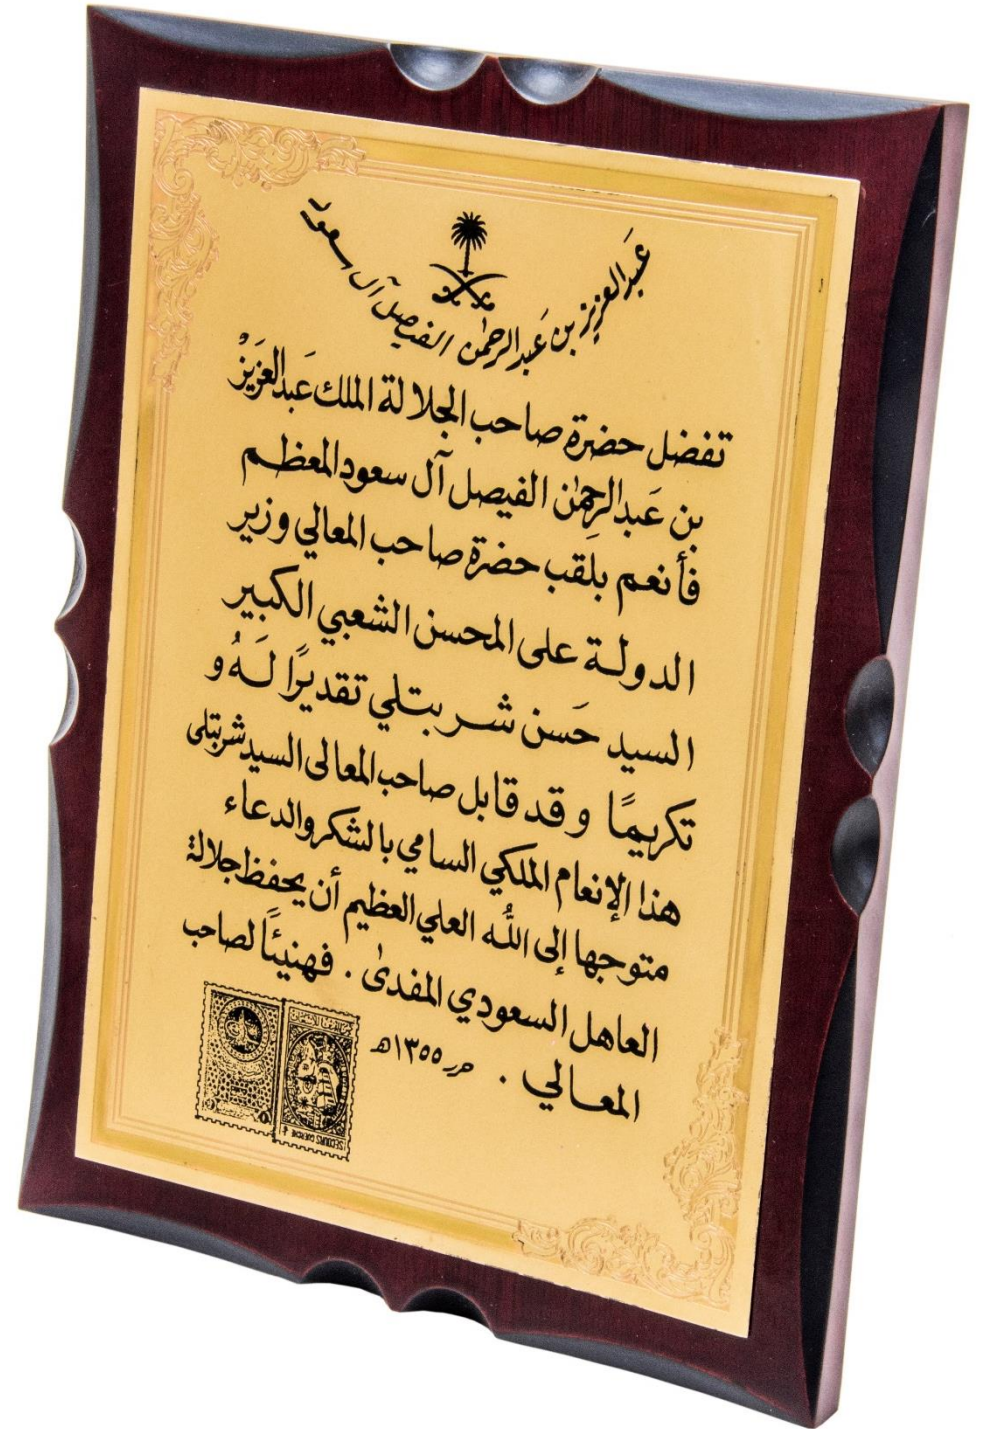 عَبدالعزيز بن عَبدالرحمٰن الفيصل آل سعود
تفضل حضرة صاحب الجلالة الملك عَبدالعَزيْز
بن عَبدالرحمٰن الفيصل آل سعود المعظم
فأنعم بلقب حضرة صاحب المعالي وزير
الدولة على المحسن الشعبي الكبير
السيد حَسن شربتلي تقديرًا لَهُ و
تكريمًا وقد قابل صاحب المعالى السيد شربتلى
هذا الإنعام الملكي السامي بالشكر والدعاء
متوجها إلى اللّٰه العلي العظيم أن يحفظ جلالة
العاهل السعودي المفدىٰ . فهنيئًا لصاحب
المعالي . حرر ١٣٥٥هـ
SECOURS